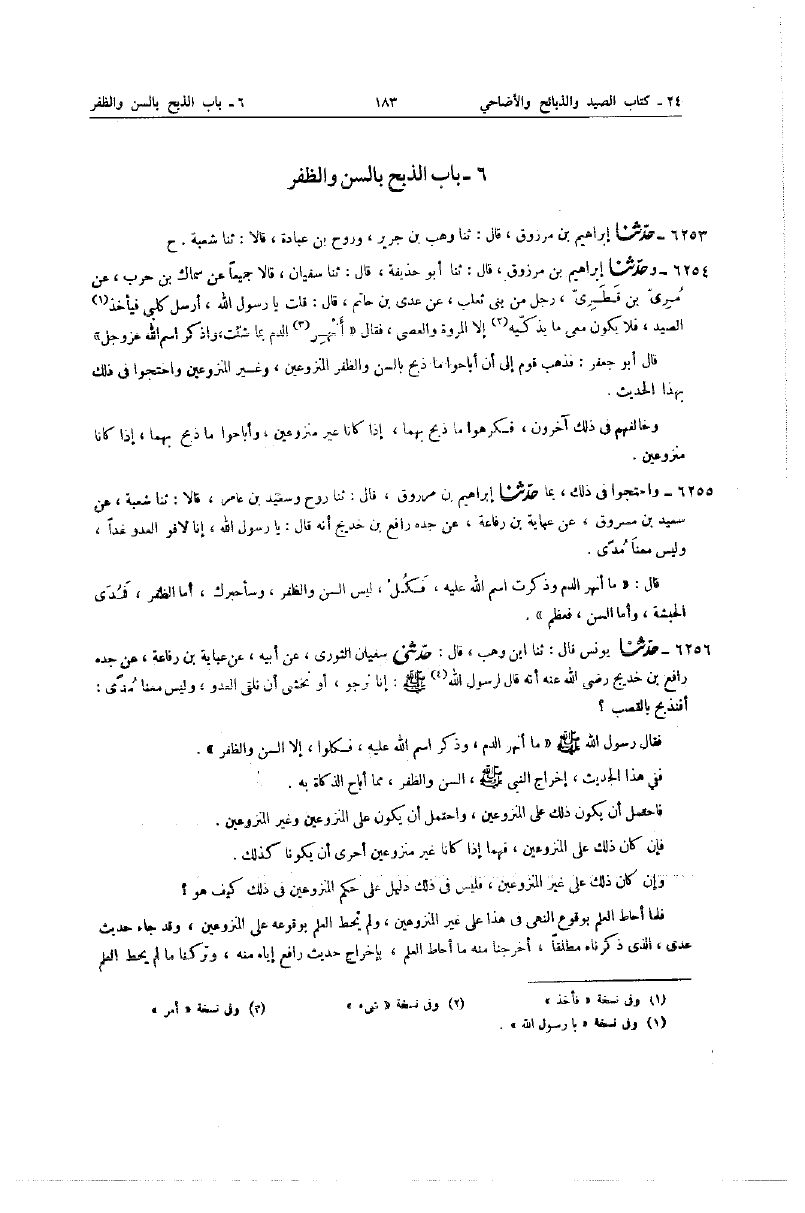 ٢٤ ـ كتاب الصيد والذبائح والأضاحي ١٨٣ ٦ ـ باب الذبح بالسن والظفر
٦ ـ باب الذبح بالسن والظفر
٦٢٥٣ ـ حدّثنا إبراهيم بن مرزوق ، قال : ثنا وهب بن جرير ، وروح بن عبادة ، قالا : ثنا شعبة . ح
٦٢٥٤ ـ وحدّثنا إبراهيم بن مرزوق ، قال : ثنا أبو حذيفة ، قال : ثنا سفيان ، قالا جميعاً عن سماك بن حرب ، عن
مُرِىّ بن قَطَرِىّ ، رجل من بنى ثعلب ، عن عدى بن حاتم ، قال : قلت يا رسول الله ، أرسل كلبى فيأخذ(١)
الصيد ، فلا يكون معى ما يذكّيه(٢) إلا المروة والعصى ، فقال « أَنْهِرِ(٣) الدم بما شئت، واذكر اسم الله عز وجل»
قال أبو جعفر : فذهب قوم إلى أن أباحوا ما ذبح بالسن والظفر المنزوعين ، وغير المنزوعين واحتجوا فى ذلك
بهذا الحديث .
وخالفهم فى ذلك آخرون ، فكرهوا ما ذبح بهما ، إذا كانا غير منزوعين ، وأباحوا ما ذبح بهما ، إذا كانا
منزوعين .
٦٢٥٥ ـ واحتجوا فى ذلك ، بما حدّثنا إبراهيم بن مرزوق ، قال : ثنا روح وسعيد بن عامر ، قالا : ثنا شعبة ، عن
سعيد بن مسروق ، عن عباية بن رفاعة ، عن جده رافع بن خديج أنه قال : يا رسول الله ، إنا لاقو العدو غداً ،
وليس معنا مُدًى .
قال : « ما أنهر الدم وذكرت اسم الله عليه ، فَكُلْ ، ليس السن والظفر ، وسأخبرك ، أما الظفر ، فَمُدَى
الحبشة ، وأما السن ، فعظم » .
٦٢٥٦ ـ حدّثنا يونس قال : ثنا ابن وهب ، قال : حدّثنى سفيان الثورى ، عن أبيه ، عن عباية بن رفاعة ، عن جده
رافع بن خديج رضى الله عنه أنه قال لرسول الله(٤) ﷺ : إنا نرجو ، أو نخشى أن نلقى العدو ، وليس معنا مُدًى :
أفنذبح بالقصب ؟
فقال رسول الله ﷺ « ما أنهر الدم ، وذكر اسم الله عليه ، فكلوا ، إلا السن والظفر » .
ففى هذا الحديث ، إخراج النبى ﷺ ، السن والظفر ، مما أباح الذكاة به .
فاحتمل أن يكون ذلك على المنزوعين ، واحتمل أن يكون على المنزوعين وغير المنزوعين .
فإن كان ذلك على المنزوعين ، فهما إذا كانا غير منزوعين أحرى أن يكونا كذلك .
وإن كان ذلك على غير المنزوعين ، فليس فى ذلك دليل على حكم المنزوعين فى ذلك كيف هو ؟
فلما أحاط العلم بوقوع النهى فى هذا على غير المنزوعين ، ولم يُحط العلم بوقوعه على المنزوعين ، وقد جاء حديث
عدى ، الذى ذكرناه مطلقاً ، أخرجنا منه ما أحاط العلم ، بإخراج حديث رافع إياه منه ، وتركنا ما لم يحط العلم
(١) وفى نسخة « فأخذ » (٢) وفى نسخة « شىء » (٣) وفى نسخة « أمر »
(١) وفى نسخة « يا رسول الله » .